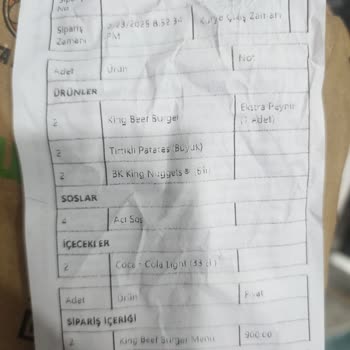 Sipariş
No
Sipariş
Zamanı
2025 8:52:34
PM
Kurye Çıkış Zamanı
Adet Ürün Not
ÜRÜNLER
2 King Beef Burger Ekstra Peynir
(1 Adet)
2 Tırtıklı Patates (Büyük)
2 BK King Nuggets
SOSLAR
Acı Sos
İÇECEKLER
2 Coca - Cola Light (33 cl)
Adet Ürün Fiyat
SİPARİŞ İÇERİĞİ
2 King Beef Burger Menü 900.00